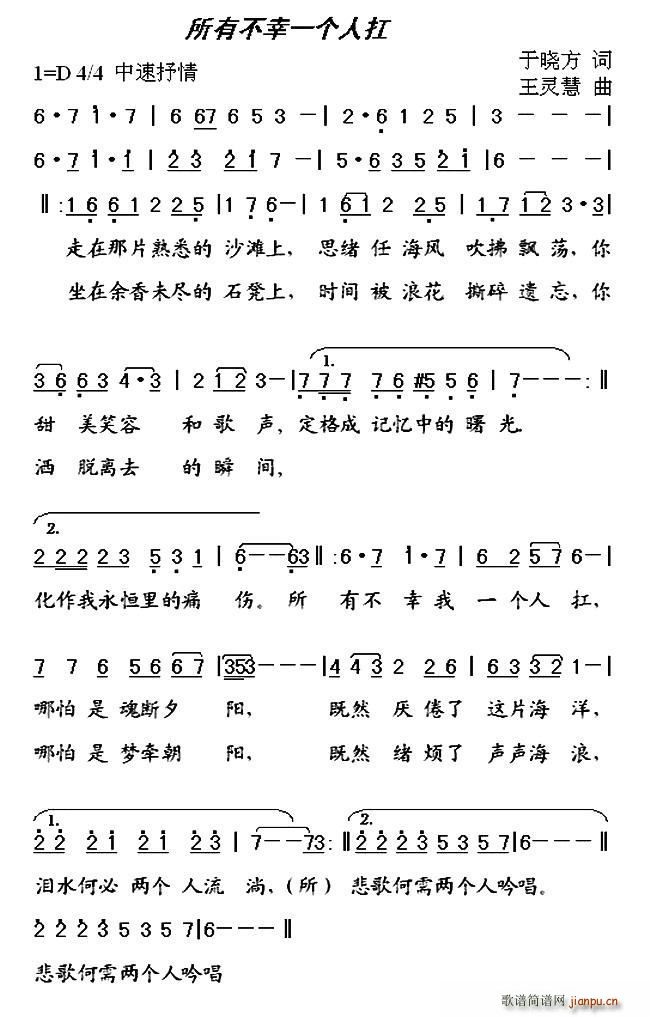 所有不幸一个人扛
1=D 4/4 中速抒情
于晓方 词
王灵慧 曲
6·7 1·7 | 6 67 6 5 3 – | 2·6 1 2 5 | 3 – – – |
6·7 1·1 | 2 3 2 1 7 – | 5·6 3 5 2 1 | 6 – – – |
‖: 1 6 6 1 2 2 5 | 1 7 6 – | 1 6 1 2 2 5 | 1 7 1 2 3·3 |
走在那片熟悉的 沙滩上, 思绪 任 海风 吹拂 飘荡, 你
坐在余香未尽的 石凳上, 时间 被 浪花 撕碎 遗忘, 你
1.
3 6 6 3 4·3 | 2 1 2 3 – | 7 7 7 7 6 #5 5 6 | 7 – – – :‖
甜 美笑容 和 歌 声, 定格成 记忆中的 曙 光.
洒 脱离去 的 瞬 间,
2.
2 2 2 2 3 5 3 1 | 6 – – 6 3 ‖: 6·7 1·7 | 6 2 5 7 6 – |
化作我永恒里的痛 伤。 所 有不 幸我 一 个人 扛,
7 7 6 5 6 6 7 | 3 5 3 – – – | 4 4 3 2 2 6 | 6 3 3 2 1 – |
哪怕 是 魂断夕 阳, 既然 厌 倦了 这片海 洋,
哪怕 是 梦牵朝 阳, 既然 绪 烦了 声声海 浪,
1. 2.
2 2 2 1 2 1 2 3 | 7 – – 7 3 :‖ 2 2 2 2 3 5 3 5 7 | 6 – – – |
泪水何必 两个 人流 淌,(所) 悲歌何需两个人吟唱。
2 2 2 2 3 5 3 5 7 | 6 – – – ‖
悲歌何需两个人吟唱
歌谱简谱网
jianpu.cn